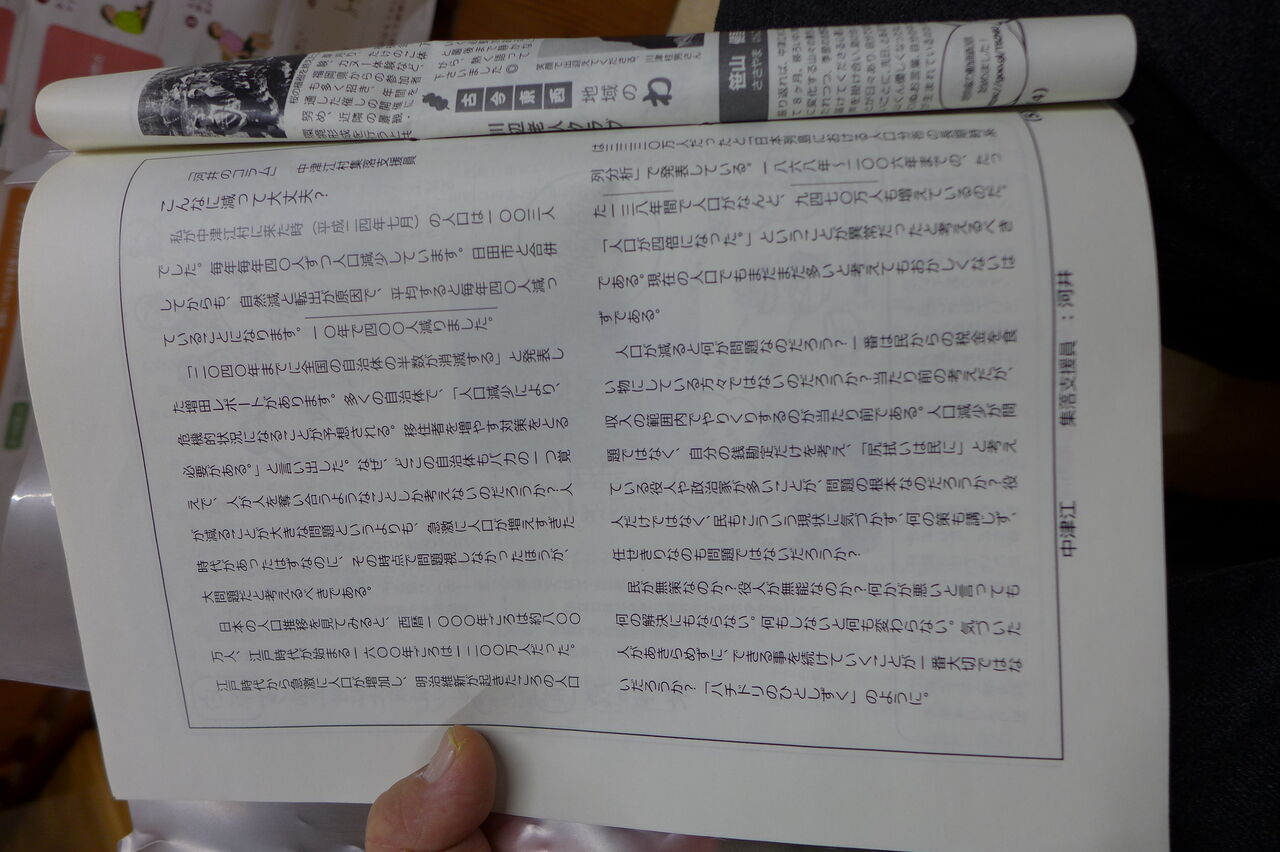 「河井のコラム」　中津江村集落支援員
こんなに減って大丈夫？
私が中津江村に来た時（平成二四年七月）の人口は一〇〇三人
でした。毎年毎年四〇人ずつ人口減少しています。日田市と合併
してからも、自然減と転出が原因で、平均すると毎年四〇人減っ
ていることになります。一〇年で四〇〇人減りました。
「二〇四〇年までに全国の自治体の半数が消滅する」と発表し
た増田レポートがあります。多くの自治体で、「人口減少により、
危機的状況になることが予想される。移住者を増やす対策をとる
必要がある。」と言い出した。なぜ、どこの自治体もバカの一つ覚
えで、人が人を奪い合うようなことしか考えないのだろうか？人
が減ることが大きな問題というよりも、急激に人口が増えすぎた
時代があったはずなのに、その時点で問題視しなかったほうが、
大問題だと考えるべきである。
日本の人口推移を見てみると、西暦一〇〇〇年ごろは約八〇〇
万人、江戸時代が始まる一六〇〇年ごろは一二〇〇万人だった。
江戸時代から急激に人口が増加し、明治維新が起きたころの人口
は三三三〇万人だったと「日本列島における人口分布の長期時系
列分析」で発表している。一八六八年～二〇〇六年までの、たっ
た一三八年間で人口がなんと、九四七〇万人も増えているのだ。
「人口が四倍になった。」ということが異常だったと考えるべき
である。現在の人口でもまだまだ多いと考えてもおかしくないは
ずである。
人口が減ると何が問題なのだろう？一番は民からの税金を食
い物にしている方々ではないのだろうか？当たり前の考えだが、
収入の範囲内でやりくりするのが当たり前である。人口減少が問
題ではなく、自分の銭勘定だけを考え、「尻拭いは民に」と考え
ている役人や政治家が多いことが、問題の根本なのだろうか？役
人だけではなく、民もこういう現状に気づかず、何の策も講じず、
任せきりなのも問題ではないだろうか？
民が無策なのか？役人が無能なのか？何かが悪いと言っても
何の解決にもならない。何もしないと何も変わらない。気づいた
人があきらめずに、できる事を続けていくことが一番大切ではな
いだろうか？「ハチドリのひとしずく」のように。
中津江　集落支援員　：河井
古今東西
地域のわ
笹山
ささやま
川辺老人クラブ
福岡県からの参加者
も多く招き、年間を
通した催しの開催に
努め、近隣の景観・
下さいました◎
笑顔で出迎えてくださる